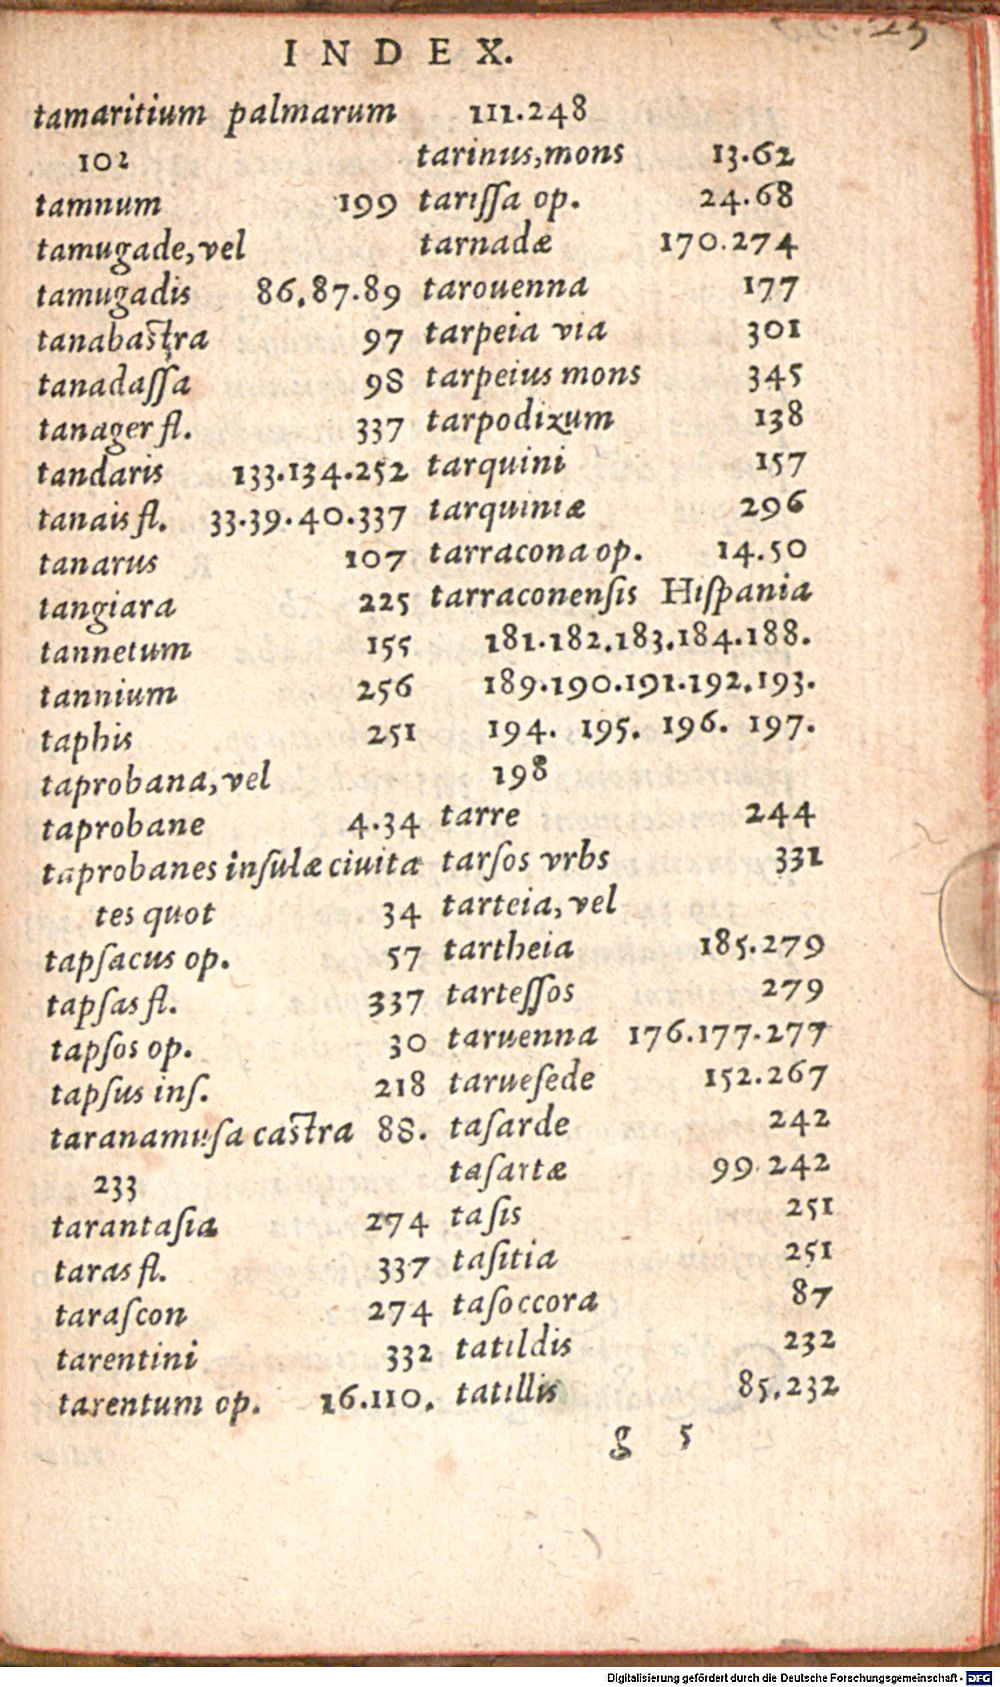 INDEX.
tamaritium palmarum
102
tamnum 199
tamugade, vel
tamugadis 86.87.89
tanabaſtra 97
tanadaſſa 98
tanager fl. 337
tandaris 133.134.252
tanais fl. 33.39.40.337
tanarus 107
tangiara 225
tannetum 155
tannium 256
taphis 251
taprobana, vel
taprobane 4.34
taprobanes inſulæ ciuita
tes quot 34
tapſacus op. 57
tapſas fl. 337
tapſos op. 30
tapſus inſ. 218
taranamuſa caſtra 88.
233
tarantaſia 274
taras fl. 337
taraſcon 274
tarentini 332
tarentum op. 16.110.
111.248
tarinus, mons 13.62
tariſſa op. 24.68
tarnadæ 170.274
tarouenna 177
tarpeia via 301
tarpeius mons 345
tarpodizum 138
tarquini 157
tarquiniæ 296
tarracona op. 14.50
tarraconenſis Hiſpania
181.182.183.184.188.
189.190.191.192.193.
194. 195. 196. 197.
198
tarre 244
tarſos vrbs 331
tarteia, vel
tartheia 185.279
tarteſſos 279
taruenna 176.177.277
tarueſede 152.267
taſarde 242
taſartæ 99.242
taſis 251
taſitia 251
taſoccora 87
tatildis 232
tatillis 85.232
g 5
Digitalisierung gefördert durch die Deutsche Forschungsgemeinschaft - DFG